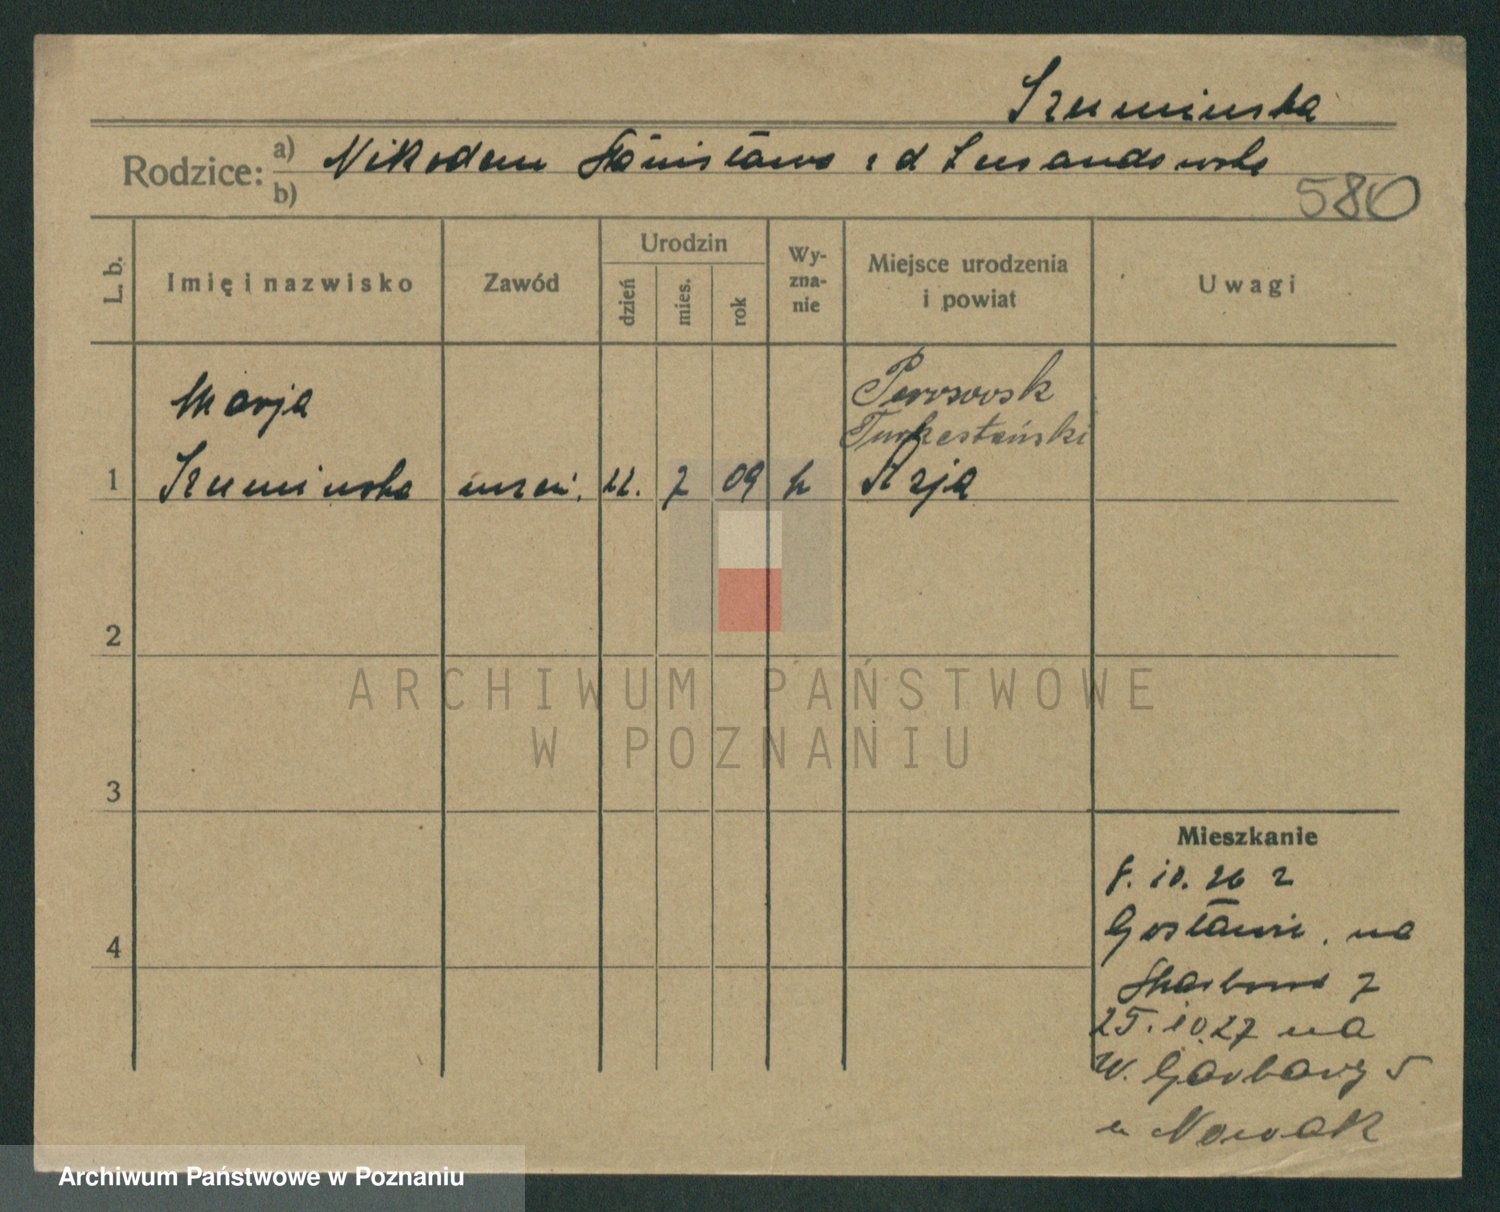 Szumińska
Rodzice: a) Nikodem Stanisława z d Lewandowska
b)
580
L. b. Imię i nazwisko Zawód Urodzin dzień mies. rok Wyznanie Miejsce urodzenia i powiat Uwagi
Marja
Perowsk
Turkestański
1 Szumińska uczeń. 22. 7 09 k Azja
2
3
4
ARCHIWUM PAŃSTWOWE
W POZNANIU
Mieszkanie
8. 10. 26 z
Gosławic. na
Skarbowa 7
25. 10.27 na
W. Garbary 5
u Nowak
Archiwum Państwowe w Poznaniu